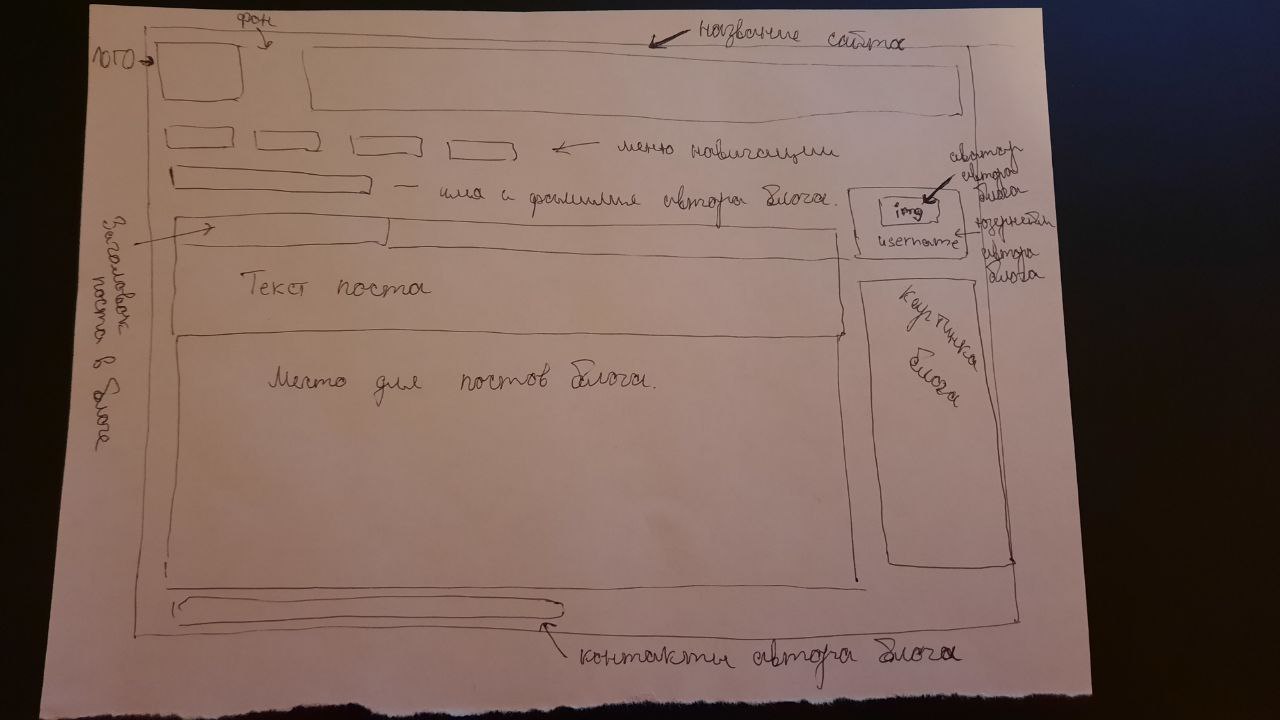 фон
название сайта
лого
меню навигации
имя и фамилия автора блога.
аватар
автора
блога
img
username
юзернейм
автора
блога
Заголовок
поста в блоге
Текст поста
Картинка
блога
Место для постов блога.
контакты автора блога